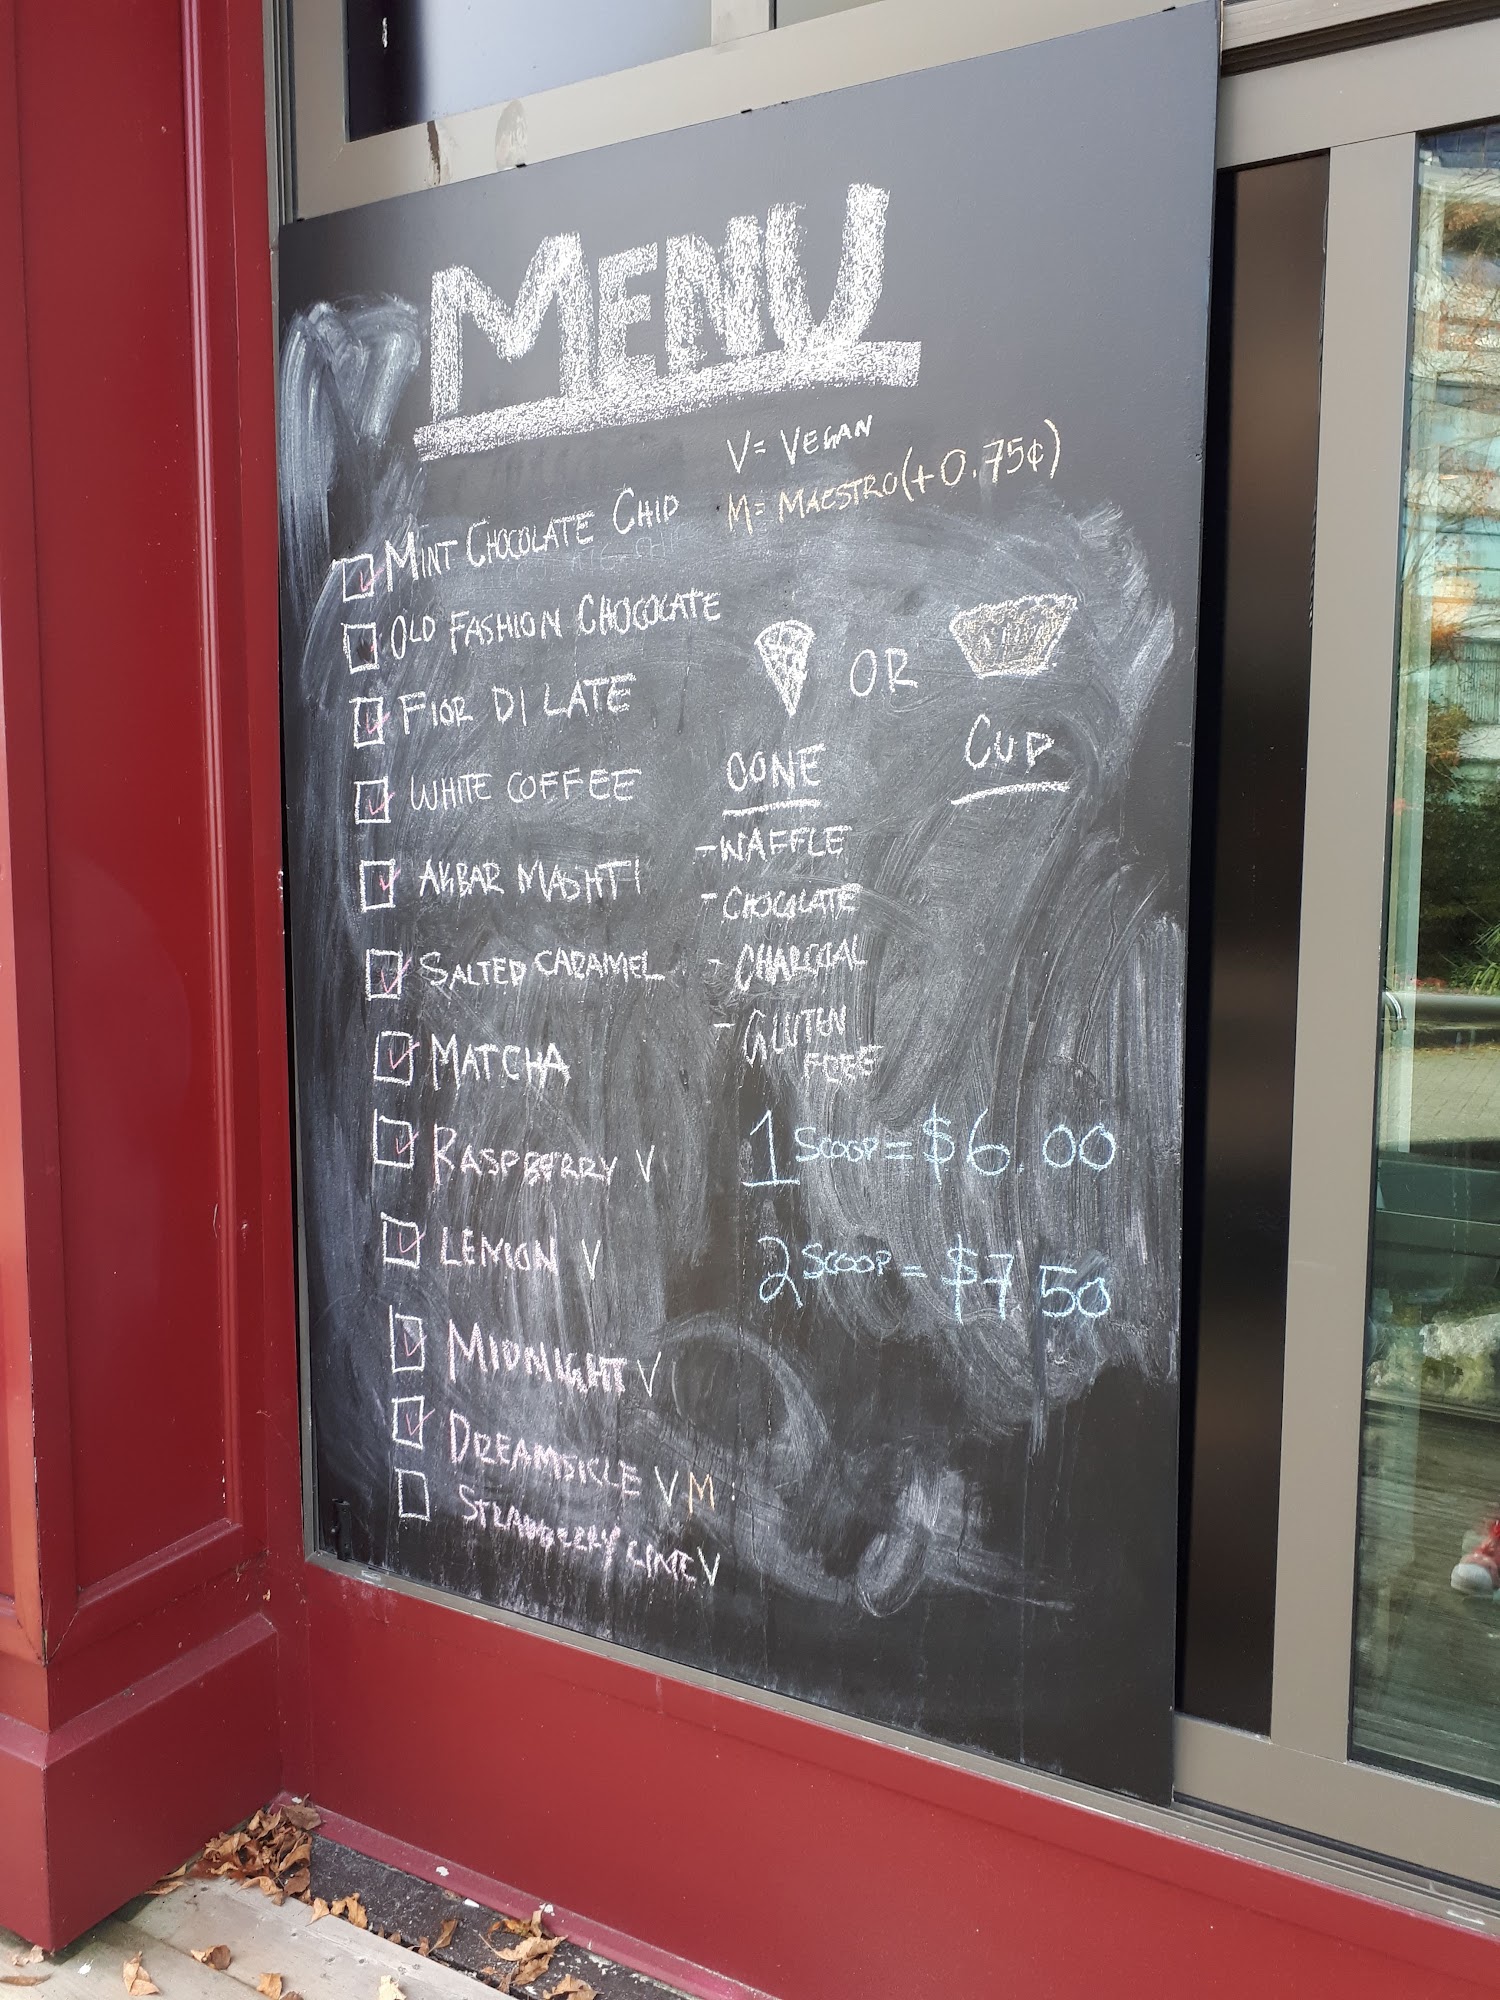 MENU
V= VEGAN
M= MAESTRO(+0.75¢)
MINT CHOCOLATE CHIP
OLD FASHION CHOCOLATE
FIOR DI LATE
WHITE COFFEE
AKBAR MASHTI
SALTED CARAMEL
MATCHA
RASPBERRY V
LEMON V
MIDNIGHT V
DREAMSICLE V M
STRAWBERRY LIME V
OR
CONE
- WAFFLE
- CHOCOLATE
- CHARCOAL
- GLUTEN
FREE
CUP
1 SCOOP = $6.00
2 SCOOP = $7.50